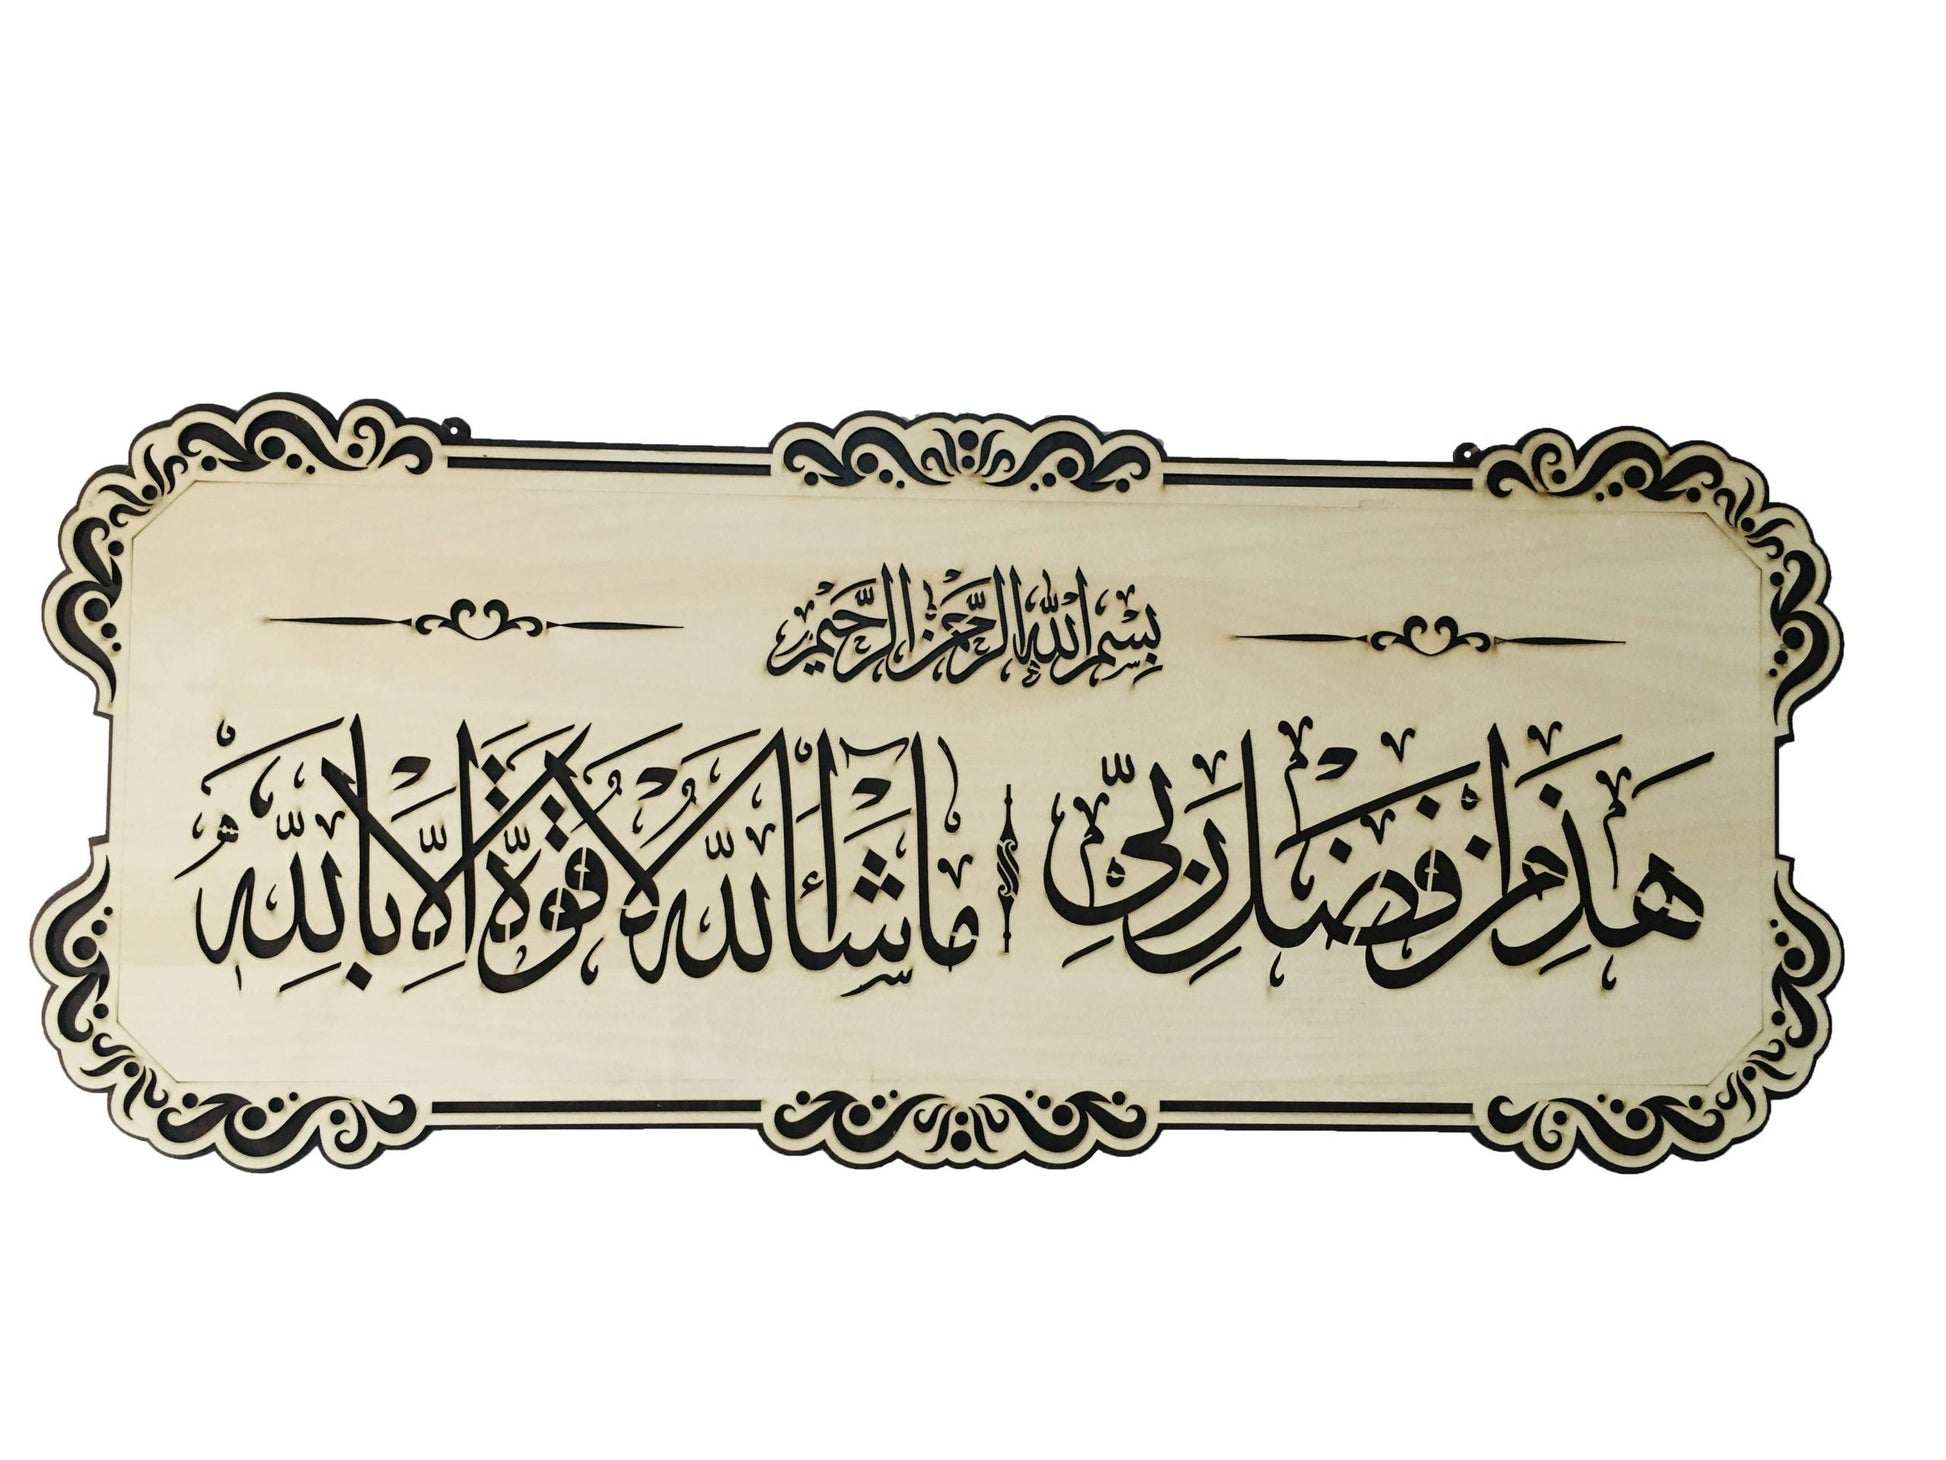 بسم الله الرحمن الرحيم
هذا من فضل ربي ما شاء الله لا قوة الا بالله